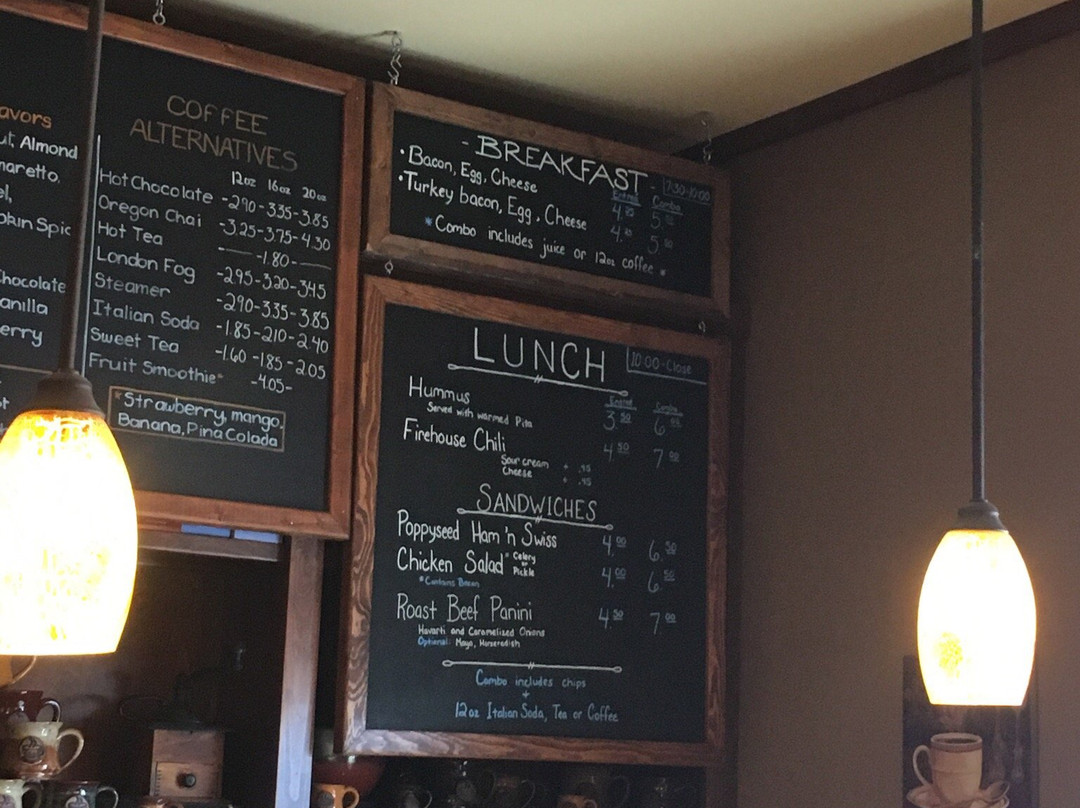 avors
Almond
maretto,
el,
pkin Spic
hocolate
anilla
erry
COFFEE
ALTERNATIVES
12oz 16oz 20oz
Hot Chocolate -290-335-3.85
Oregon Chai -3.25-3.75-4.30
Hot Tea -1.80-
London Fog -295-320-345
Steamer -290-335-3.85
Italian Soda -1.85-210-2.40
Sweet Tea -1.60-185-205
Fruit Smoothie* -4.05-
*Strawberry, mango,
Banana, Pina Colada
- BREAKFAST - 7:30-10:00
Entree Combo
•Bacon, Egg, Cheese
•Turkey bacon, Egg, Cheese
*Combo includes juice or 12oz coffee *
LUNCH 10:00-Close
Entree Combo
Hummus 3.50
Served with warmed Pita
Firehouse Chili 4.50 7.00
Sour cream + .45
Cheese + .45
SANDWICHES
Poppyseed Ham 'n Swiss 4.00 6.50
Chicken Salad* Celery or Pickle 4.00 6.50
*Contains Bacon
Roast Beef Panini 4.50 7.00
Havarti and Caramelized Onions
Optional: Mayo, Horseradish
Combo includes chips
+
12oz Italian Soda, Tea or Coffee